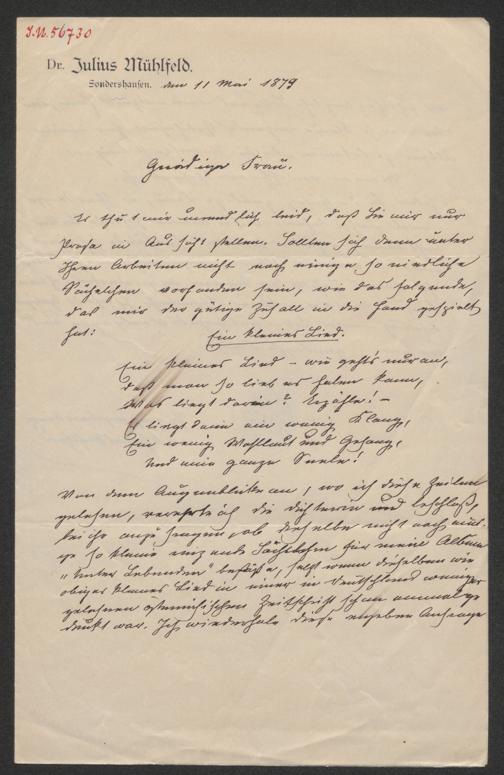 J.N. 56730
Dr. Julius Mühlfeld.
Sondershausen. den 11 Mai 1879
Gnädige Frau.
Es thut mir unendlich leid, daß Sie mir nur
Prosa in Aussicht stellen. Sollten sich denn unter
Ihren Arbeiten nicht noch einige so niedliche
Sächelchen vorfanden sein, wie das folgende,
das mir der gütige Zufall in die Hand gespielt
hat:
Ein kleines Lied.
Ein kleines Lied – wie geht's nur an,
daß man so lieb es haben kann,
Was liegt darin? Erzähle! –
Es liegt darin ein wenig Klang,
Ein wenig Wohllaut und Gesang,
Und eine ganze Seele!
Von dem Augenblicke an, wo ich diese Zeilen
gelesen, verehrte ich die Dichterin und beschloß,
bei ihr anzufragen, ob dieselbe nicht noch eini-
ge so kleine reizende Sächelchen für mein Album
"Unter Lebenden" besäße, selbst wenn dieselben wie
obiges kleines Lied in einer in Deutschland weniger
gelesenen österreichischen Zeitschrift schon einmal ge
druckt war. Ich wiederhole diese ergebene Anfrage